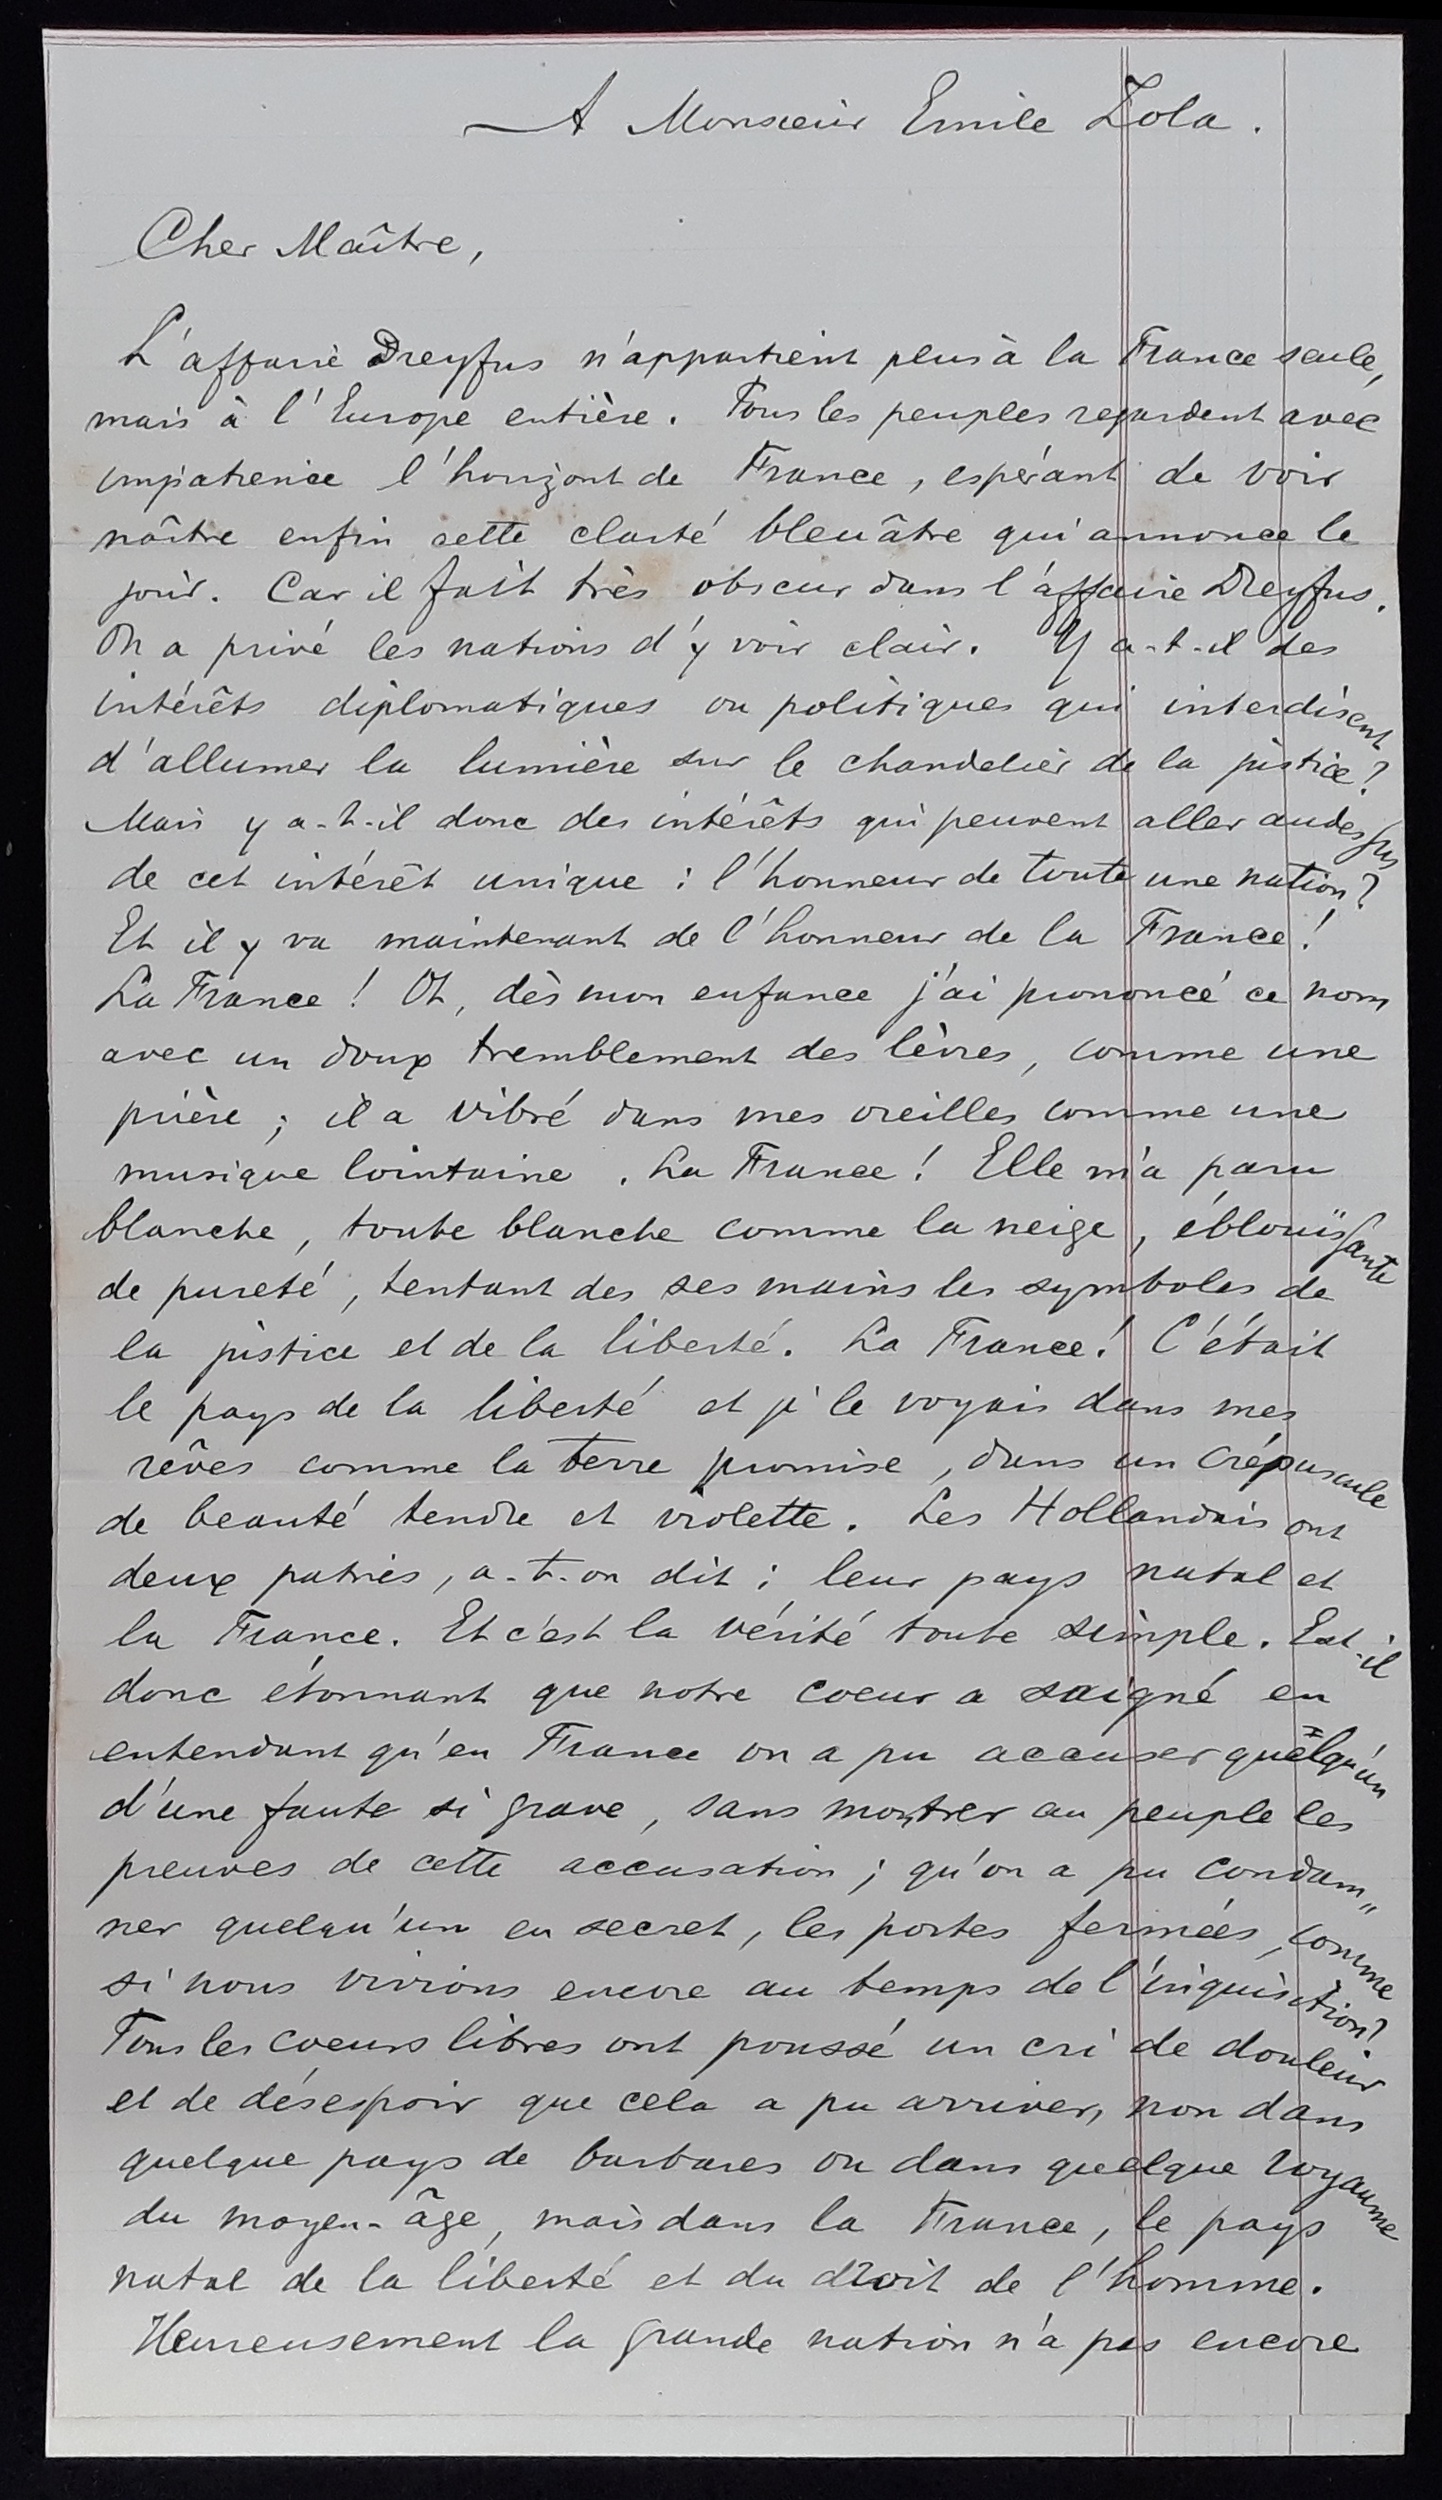 A Monsieur Emile Zola.
Cher Maître,
L'affaire Dreyfus n'appartient plus à la France seule,
mais à l'Europe entière. Tous les peuples regardent avec
impatience l'horizont de France, espérant de voir
naître enfin cette clarté bleuâtre qui annonce le
jour. Car il fait très obscur dans l'affaire Dreyfus.
On a privé les nations d'y voir clair. Y a-t-il des
intérêts diplomatiques ou politiques qui interdisent
d'allumer la lumière sur le chandelier de la justice?
Mais y a-t-il donc des intérêts qui peuvent aller audessus
de cet intérêt unique: l'honneur de toute une nation?
Et il y va maintenant de l'honneur de la France!
La France! Oh, dès mon enfance j'ai prononcé ce nom
avec un doux tremblement des lèvres, comme une
prière; il a vibré dans mes oreilles comme une
musique lointaine. La France! Elle m'a paru
blanche, toute blanche comme la neige, éblouïssante
de pureté, tentant des ses mains les symboles de
la justice et de la liberté. La France! C'était
le pays de la liberté et je le voyais dans mes
rêves comme la terre promise, dans un crépuscule
de beauté tendre et violette. Les Hollandais ont
deux patries, a-t-on dit: leur pays natal et
la France. Et c'est la vérité toute simple. Est-il
donc étonnant que notre coeur a saigné en
entendant qu'en France on a pu accuser quelqu'un
d'une faute si grave, sans montrer au peuple les
preuves de cette accusation; qu'on a pu condam„
ner quelqu'un en secret, les portes fermées, comme
si nous vivions encore au temps de l'inquisition?
Tous les coeurs libres ont poussé un cri de douleur
et de désespoir que cela a pu arriver, non dans
quelque pays de barbares ou dans quelque royaume
du moyen-âge, mais dans la France, le pays
natal de la liberté et du droit de l'homme.
Heureusement la grande nation n'a pas encore